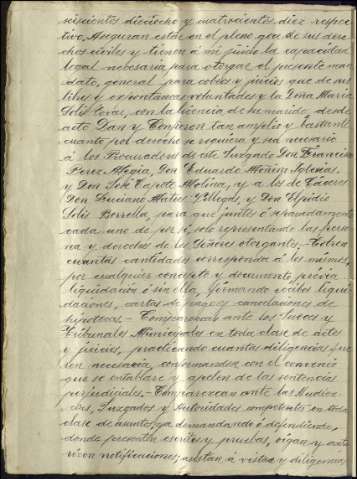 seiscientos dieciocho y cuatrocientos diez respec-
tivo, Aseguran estar en el pleno goce de sus dere-
chos civiles y tienen á mi juicio la capacidad
legal necesaria para otorgar el presente man-
dato, general para cobros y juicios que de su
libre y espontánea voluntades y la Doña María
Solís Tovar, con la licencia de su marido, desde
acto Dan y Confieren tan amplio y bastante
cuanto por derecho se requiera y sea necesario
á los Procuradores de este Juzgado Don Francisco
Perez Megia, Don Eduardo Muñoz Iglesias,
y Don José Molina, y á los de Cáceres
Don Luciano Mateos Villegas, y Don Elpidio
Solís Borrella, para que juntos ó separadamente
cada uno de por sí, solo representando las perso-
na y derechos de los Señores otorgantes,- Cobren
cuantas cantidades corresponda á los mismos,
por cualquier concepto y documento, prévia
liquidación ó sin ella, firmando recibos liqui-
daciones, cartas de pagos y cancelaciones de
hipotecas.- Comparezcan ante los Jueces y
Tribunales Municipales en toda clase de actos
y juicios, practicando cuantas diligencias fue-
ren necesarias, conformandose con el convenio
que se entablase y apelen de las sentencias
perjudiciales,- Comparezcan ante las Audien-
cias, Juzgados y Autoridades competentes en toda
clase de asuntos, ya demandando ó defendiendo,
donde presenten escritos y pruebas, oigan y auto-
ricen notificaciones; asistan á vistas y diligencias